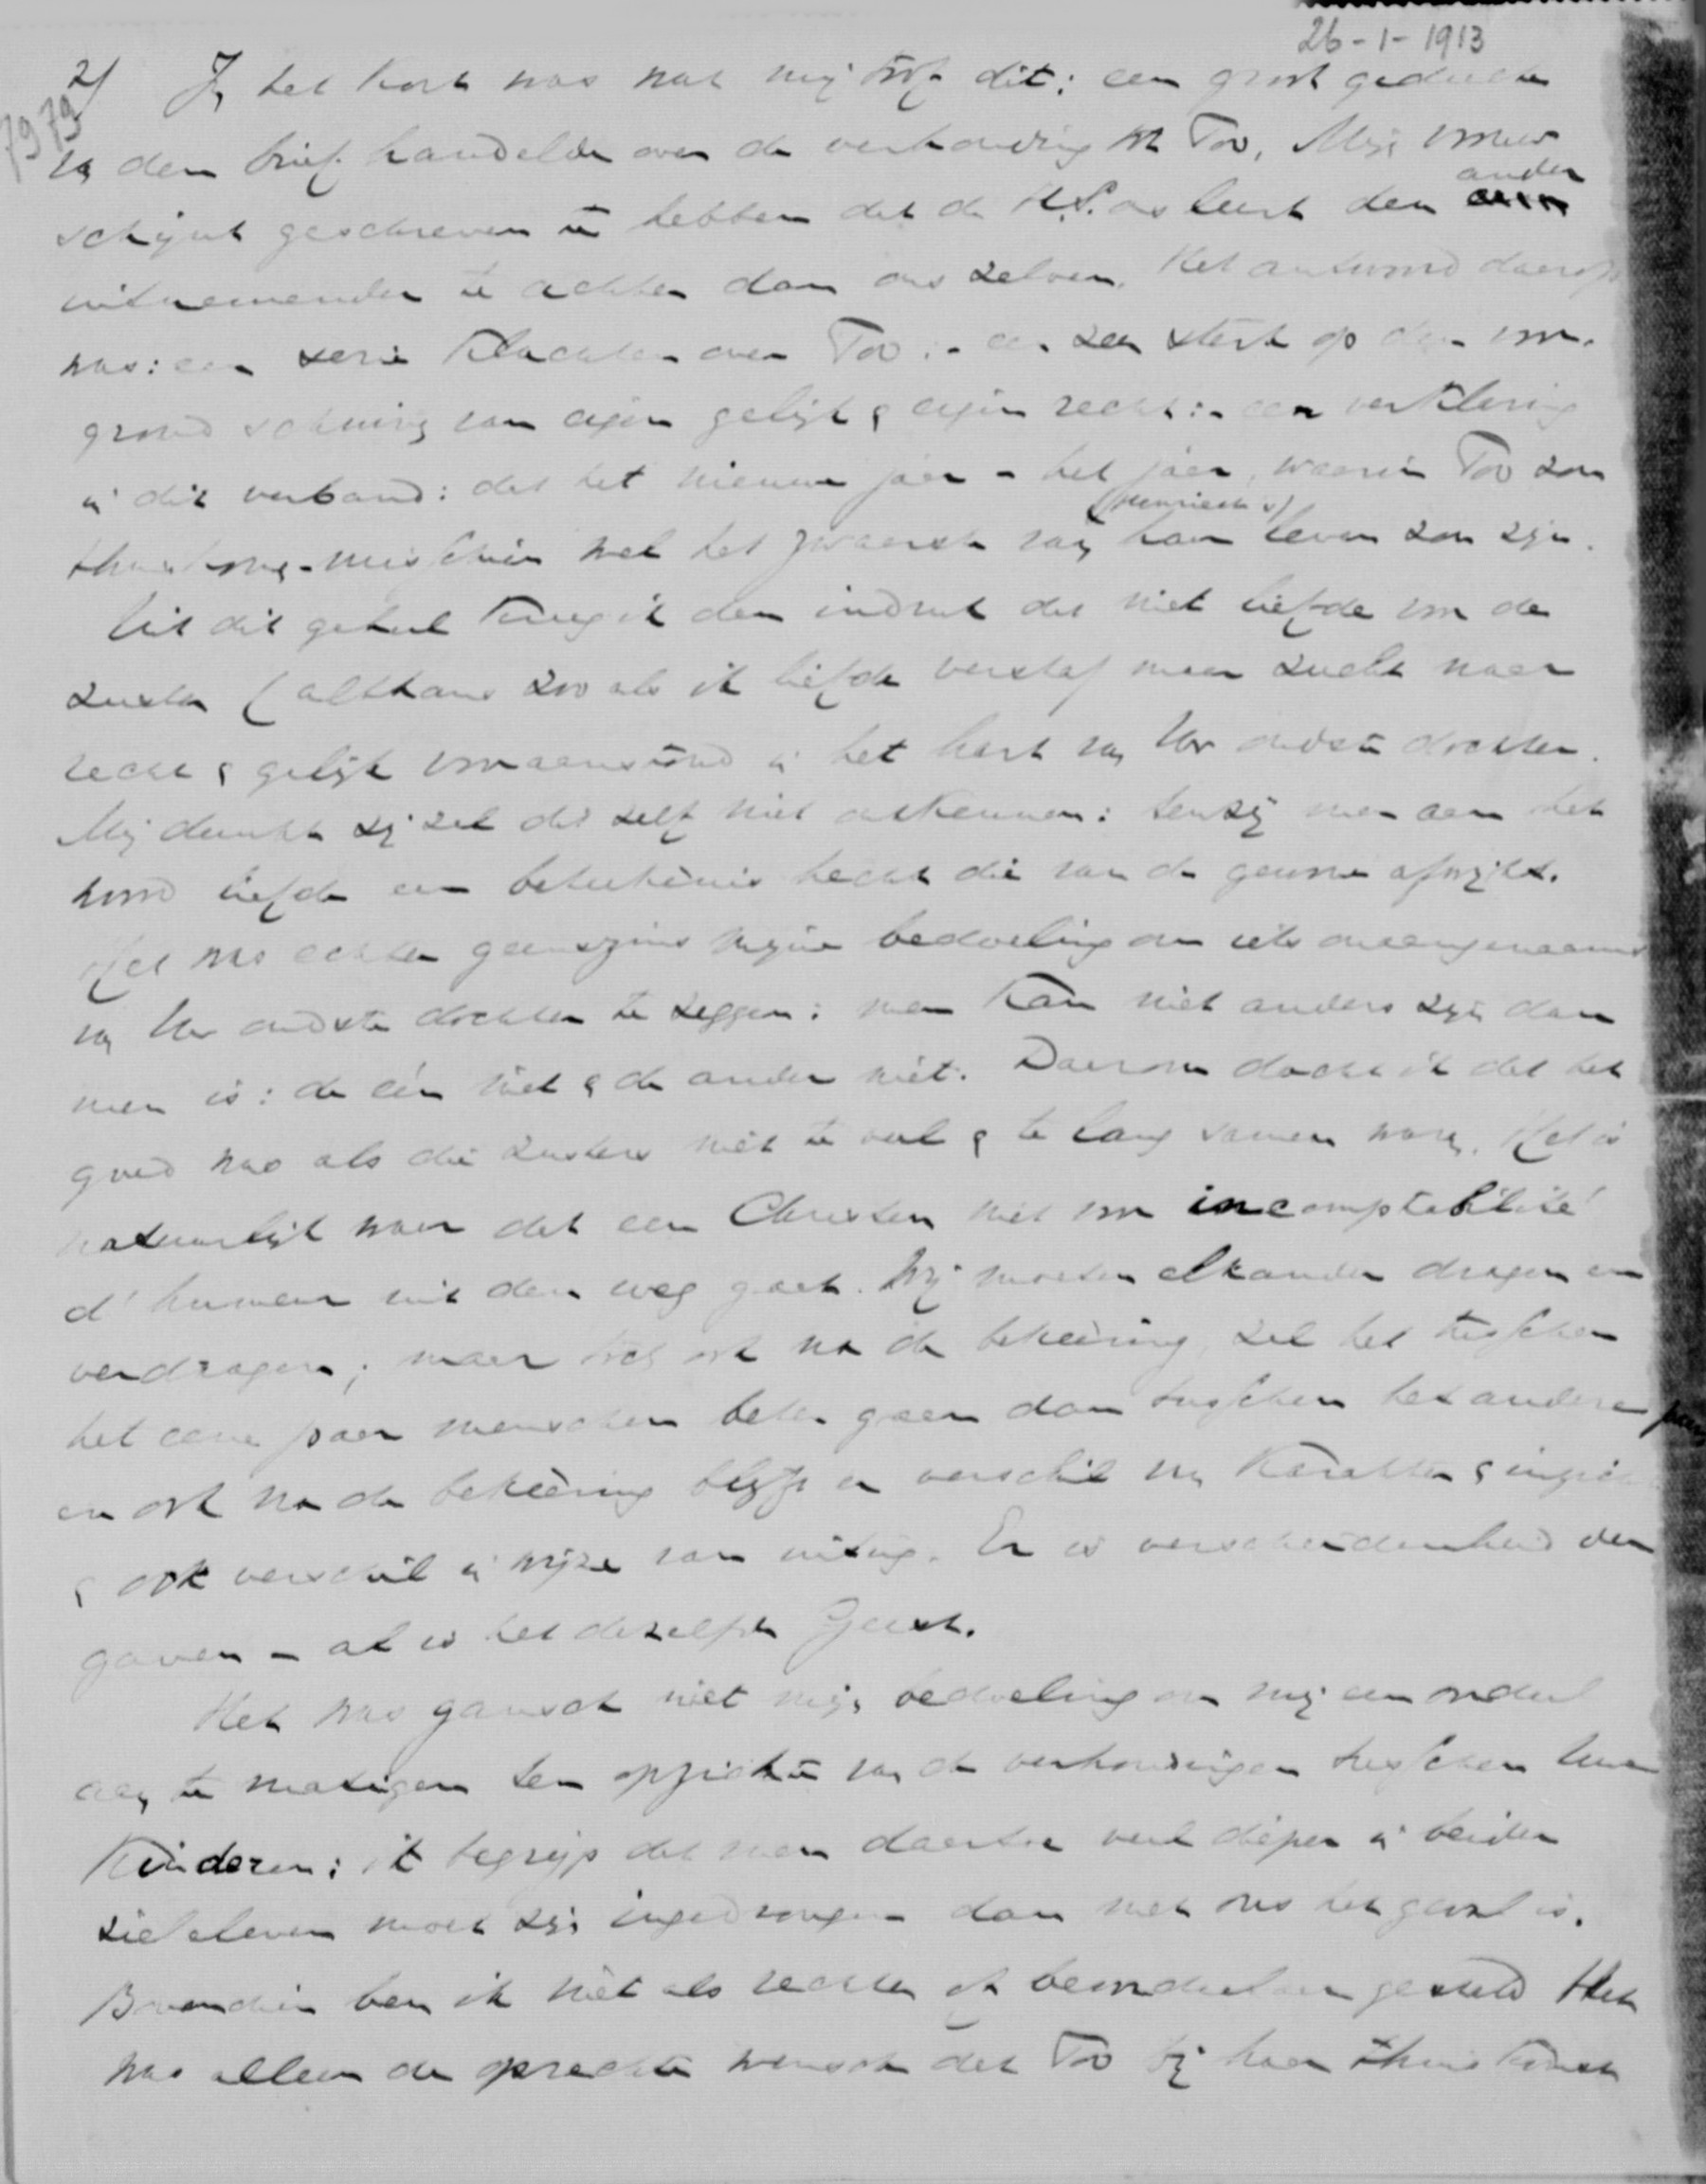 26-1-1913
7979
2/ In het kort was wat mij trof dit: een groot gedeelte
van den brief handelde over de verhouding tot Too. Mijn vrouw
schijnt geschreven te hebben dat de H.S. ons leert den ander
uitnemender te achten dan ons zelven. Het antwoord daarop
was: een serie klachten over Too :- een zeer sterk op den voor-
grond schuiving van eigen gelijk & eigen recht :- een verklaring
in dit verband: dat het nieuwe jaar - het jaar, waarin Too zou
thuiskomen - misschien wel het zwaarste van haar (Henriette's) leven zou zijn.
Uit dit geheel kreeg ik den indruk dat niet liefde voor de
zuster (althans zooals ik liefde versta) maar zucht naar
recht & gelijk vooraanstond in het hart van Uw oudste dochter.
Mij dunkt zij zal dit zelf niet ontkennen: tenzij men aan het
woord liefde een beteekenis hecht die van de gewone afwijkt.
Het was echter geenszins mijne bedoeling om iets onaangenaams
van Uw oudste dochter te zeggen: men kan niet anders zijn dan
men is: de één niet & de ander niet. Daarom dacht ik dat het
goed was als die zusters niet te veel & te lang samen waren. Het is
natuurlijk waar dat een Christen niet voor incomptabilité
d'humeur uit den weg gaat. Wij moeten elkander dragen en
verdragen; maar toch ook na de bekeering zal het tusschen
het eene paar menschen beter gaan dan tusschen het andere paar
en ook na de bekeering blijft er verschil van karakter & inzicht
& ook verschil in wijze van uiting. Er is verscheidenheid der
gaven - al is het dezelfde Geest.
Het was gansch niet mijn bedoeling om mij een oordeel
aan te matigen ten opzichte van de verhoudingen tusschen Uwe
kinderen: ik begrijp dat men daartoe veel dieper in beider
zieleleven moet zijn ingedrongen dan met ons het geval is.
Bovendien ben ik niet als rechter of beoordeelaar gesteld. Het
was alleen de oprechte wensch dat Too bij haar thuiskomst